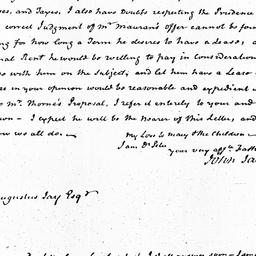 es, and Taxes. I also have Doubts respecting the Prudence
correct Judgment of Mr. Mauran's offer cannot be for
ng for how long a Term he desires to have a Lease, a
nal Rent he would be willing to pay in Consideration
s with him on the Subject, and let him have a Lease
as in your opinion would be reasonable and expedient
to Mr. Thorne's Proposal, I refer it entirely to you and
won - I expect he will be the Bearer of this Letter, and
how we all do.
My Love to Mary & the Children
I am Dr. Peter
your very affte. Fath
John Ja
Augustus Jay Esqr